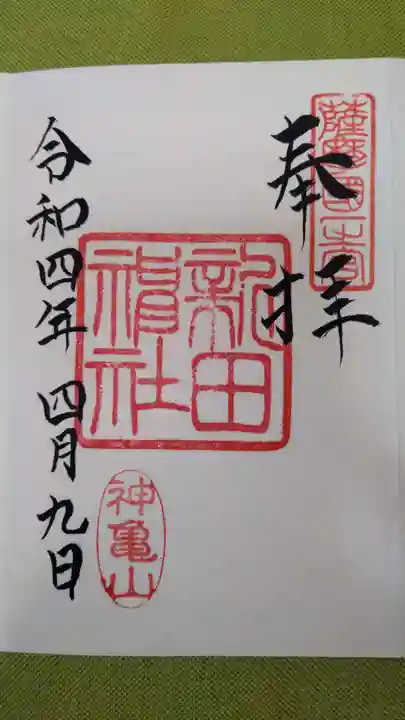 薩摩國一之宮
奉拝
新田神社
神亀山
令和四年 四月九日